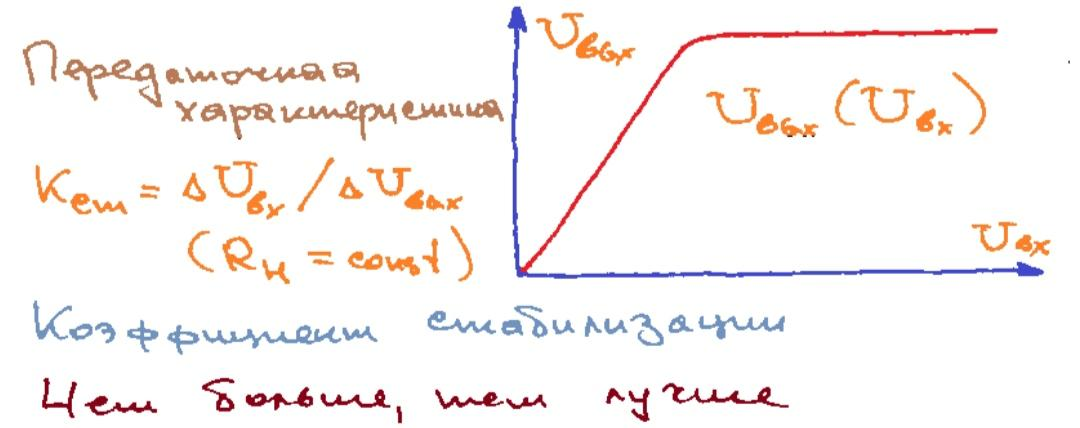 Передаточная
характеристика
Kст = ΔUвх / ΔUвых
(Rн = const)
Uвых
Uвых (Uвх)
Uвх
Коэффициент стабилизации
Чем больше, тем лучше